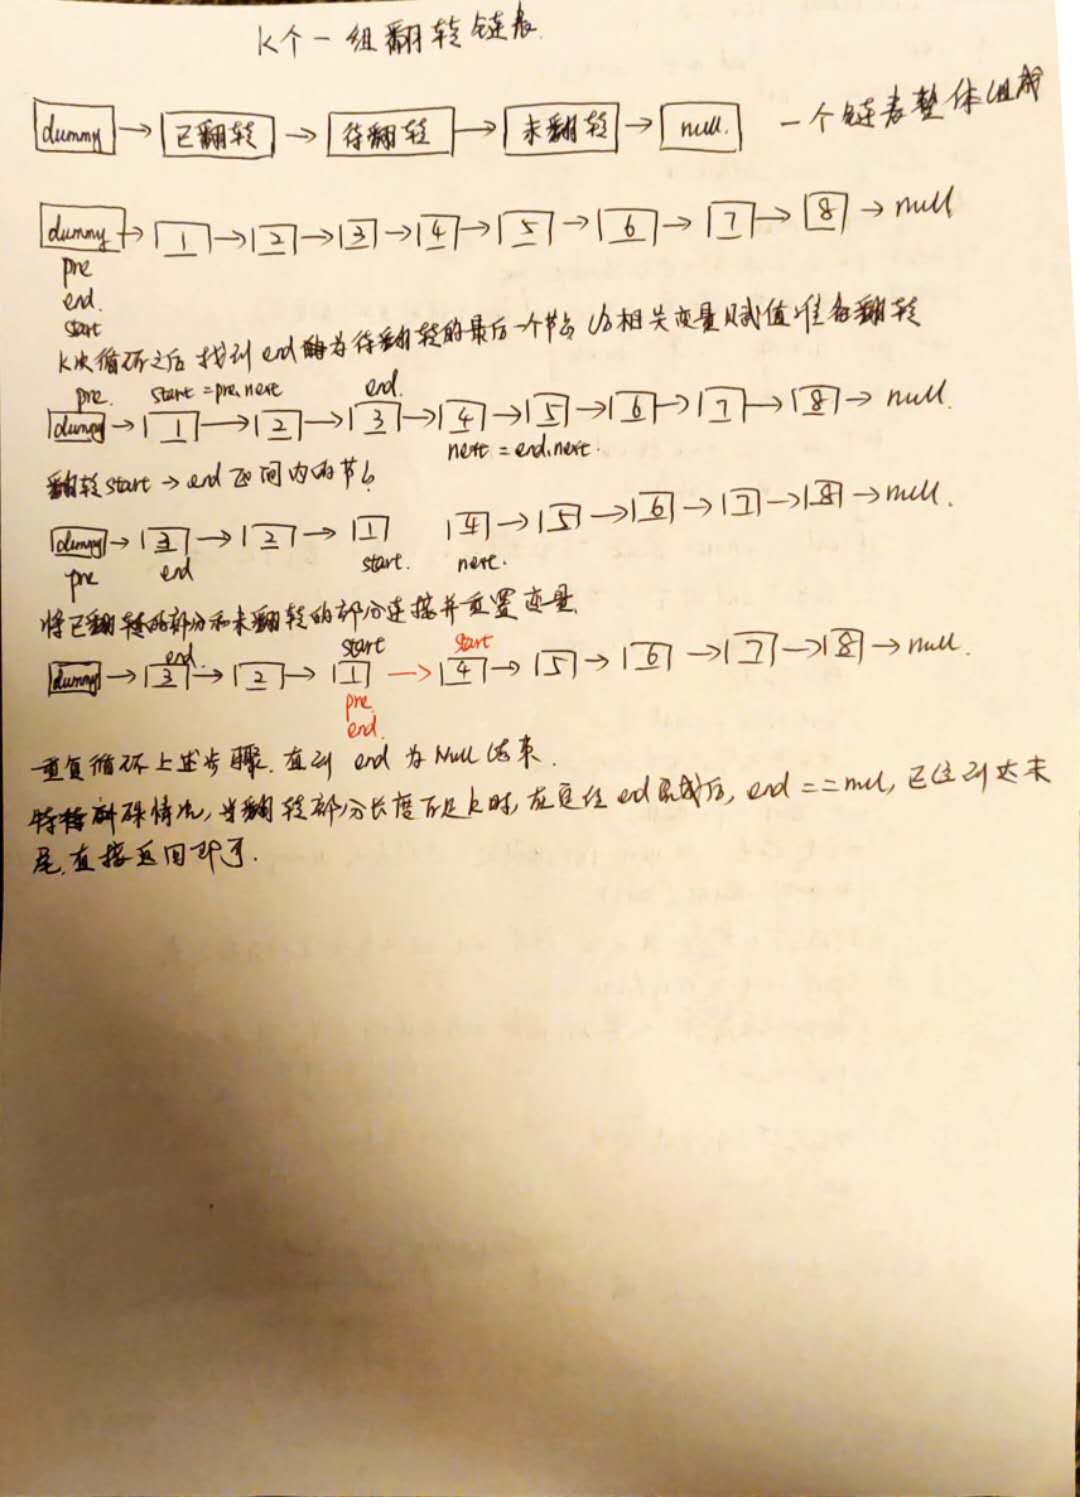 K个一组翻转链表.
dummy → 已翻转 → 待翻转 → 未翻转 → null. 一个链表整体组成
dummy → 1 → 2 → 3 → 4 → 5 → 6 → 7 → 8 → null
pre
end.
start
K次循环之后 找到 end 为待翻转的最后一个节点 给相关变量赋值准备翻转
pre. start = pre.next end.
dummy → 1 → 2 → 3 → 4 → 5 → 6 → 7 → 8 → null.
next = end.next.
翻转 start → end 区间内的节点
dummy → 3 → 2 → 1 4 → 5 → 6 → 7 → 8 → null.
pre end start. next.
将已翻转的部分和未翻转的部分连接并重置变量.
end. start start
dummy → 3 → 2 → 1 → 4 → 5 → 6 → 7 → 8 → null.
pre.
end.
重复循环上述步骤. 直到 end 为 Null 结束.
特殊情况, 当翻转部分长度不足k时, 在定位 end 完成后, end == null, 已经到达末
尾. 直接返回即可.